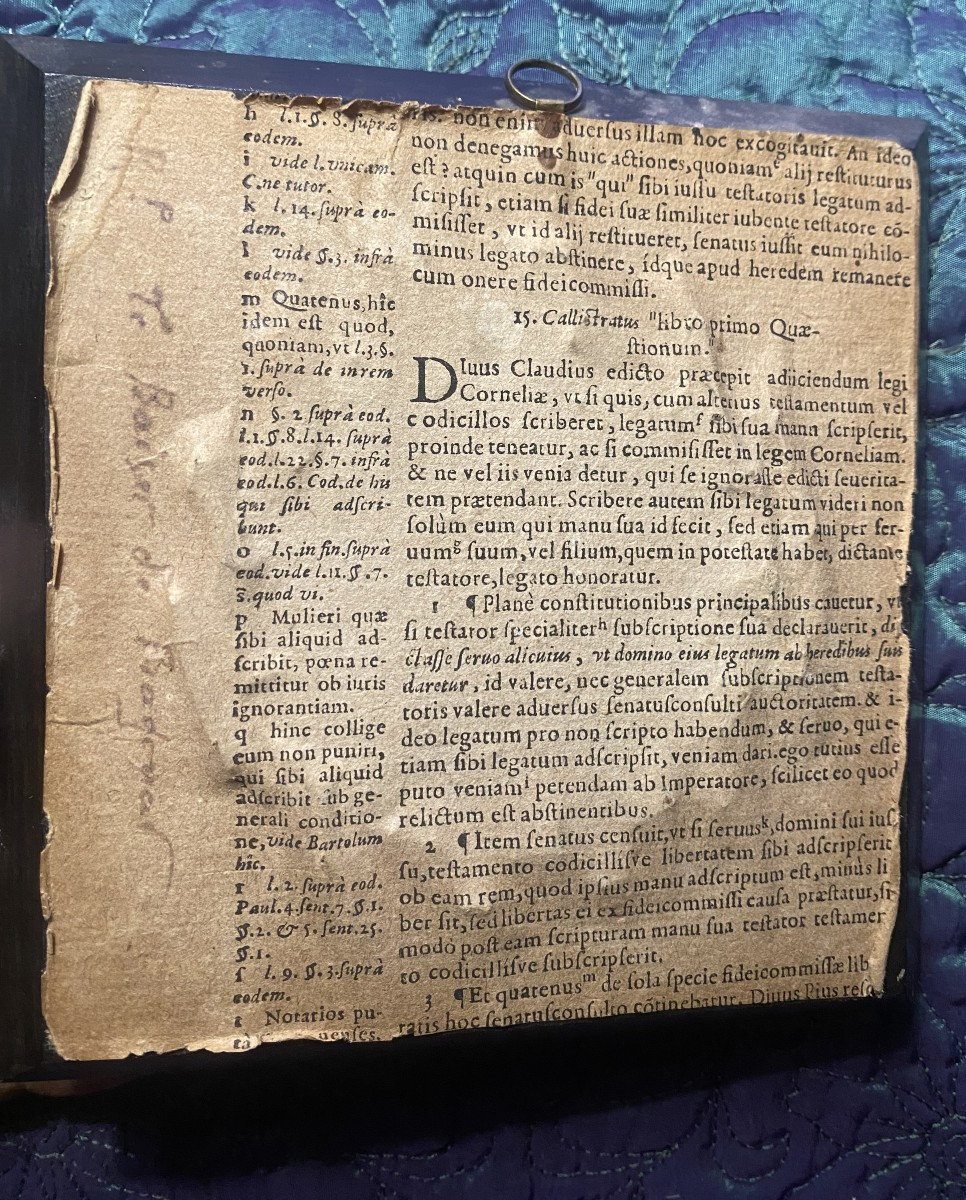 h l.1.§. 8. suprà
eodem.
i vide l. vnicam.
C. ne tutor.
k l. 14. suprà eo-
dem.
l vide §. 3. infrà
eodem.
m Quatenus, hîc
idem est quod,
quoniam, vt l.3.§.
1. suprà de in rem
verso.
n §. 2 suprà eod.
l.1.§.8.l.14. suprà
eod.l.22.§.7. infrà
eod.l.6. Cod. de his
qui sibi adscri-
bunt.
o l.5. in fin. suprà
eod. vide l.11. §. 7.
s. quod vi.
p Mulieri quæ
sibi aliquid ad-
scribit, pœna re-
mittitur ob iuris
ignorantiam.
q hinc collige
eum non puniri,
qui sibi aliquid
adscribit sub ge-
nerali conditio-
ne, vide Bartolum
hîc.
r l. 2. suprà eod.
Paul. 4. sent. 7. §. 1.
§.2. & 5. sent. 25.
§.1.
ſ l. 9. §. 3. suprà
eodem.
t Notarios pu-
non enim aduersus illam hoc excogitauit. An ideo
non denegamus huic actiones, quoniam alij restituturus
est? atquin cum is "qui" sibi iussu testatoris legatum ad-
scripsit, etiam si fidei suæ similiter iubente testatore cō-
misisset, vt id alij restitueret, senatus iussit eum nihilo-
minus legato abstinere, idque apud heredem remanere
cum onere fideicommissi.
15. Callistratus "libro primo Quæ-
stionum."
DIuus Claudius edicto præcepit adiiciendum legi
Corneliæ, vt si quis, cum alterius testamentum vel
codicillos scriberet, legatum f sibi sua manu scripserit,
proinde teneatur, ac si commisisset in legem Corneliam.
& ne vel iis venia detur, qui se ignorasse edicti seuerita-
tem prætendant. Scribere autem sibi legatum videri non
solùm eum qui manu sua id fecit, sed etiam qui per ser-
uum g suum, vel filium, quem in potestate habet, dictante
testatore, legato honoratur.
1 ¶ Planè constitutionibus principalibus cauetur, vt
si testator specialiter h subscriptione sua declarauerit, di
ctasse seruo alicuius, vt domino eius legatum ab heredibus suis
daretur, id valere, nec generalem subscriptionem testa-
toris valere aduersus senatusconsulti auctoritatem. & i-
deo legatum pro non scripto habendum, & seruo, qui e-
tiam sibi legatum adscripsit, veniam dari. ego tutius esse
puto veniam i petendam ab Imperatore, scilicet eo quod
relictum est abstinentibus.
2 ¶ Item senatus censuit, vt si seruus k, domini sui ius
su, testamento codicillisve libertatem sibi adscripserit
ob eam rem, quod ipsius manu adscriptum est, minùs li
ber sit, sed libertas ei ex fideicommissi causa præstatur, si
modò post eam scripturam manu sua testator testamen
to codicillisve subscripserit.
3 ¶ Et quatenus m de sola specie fideicommissæ lib
ratis hoc senatusconsulto cōtinebatur. Diuus Pius resc